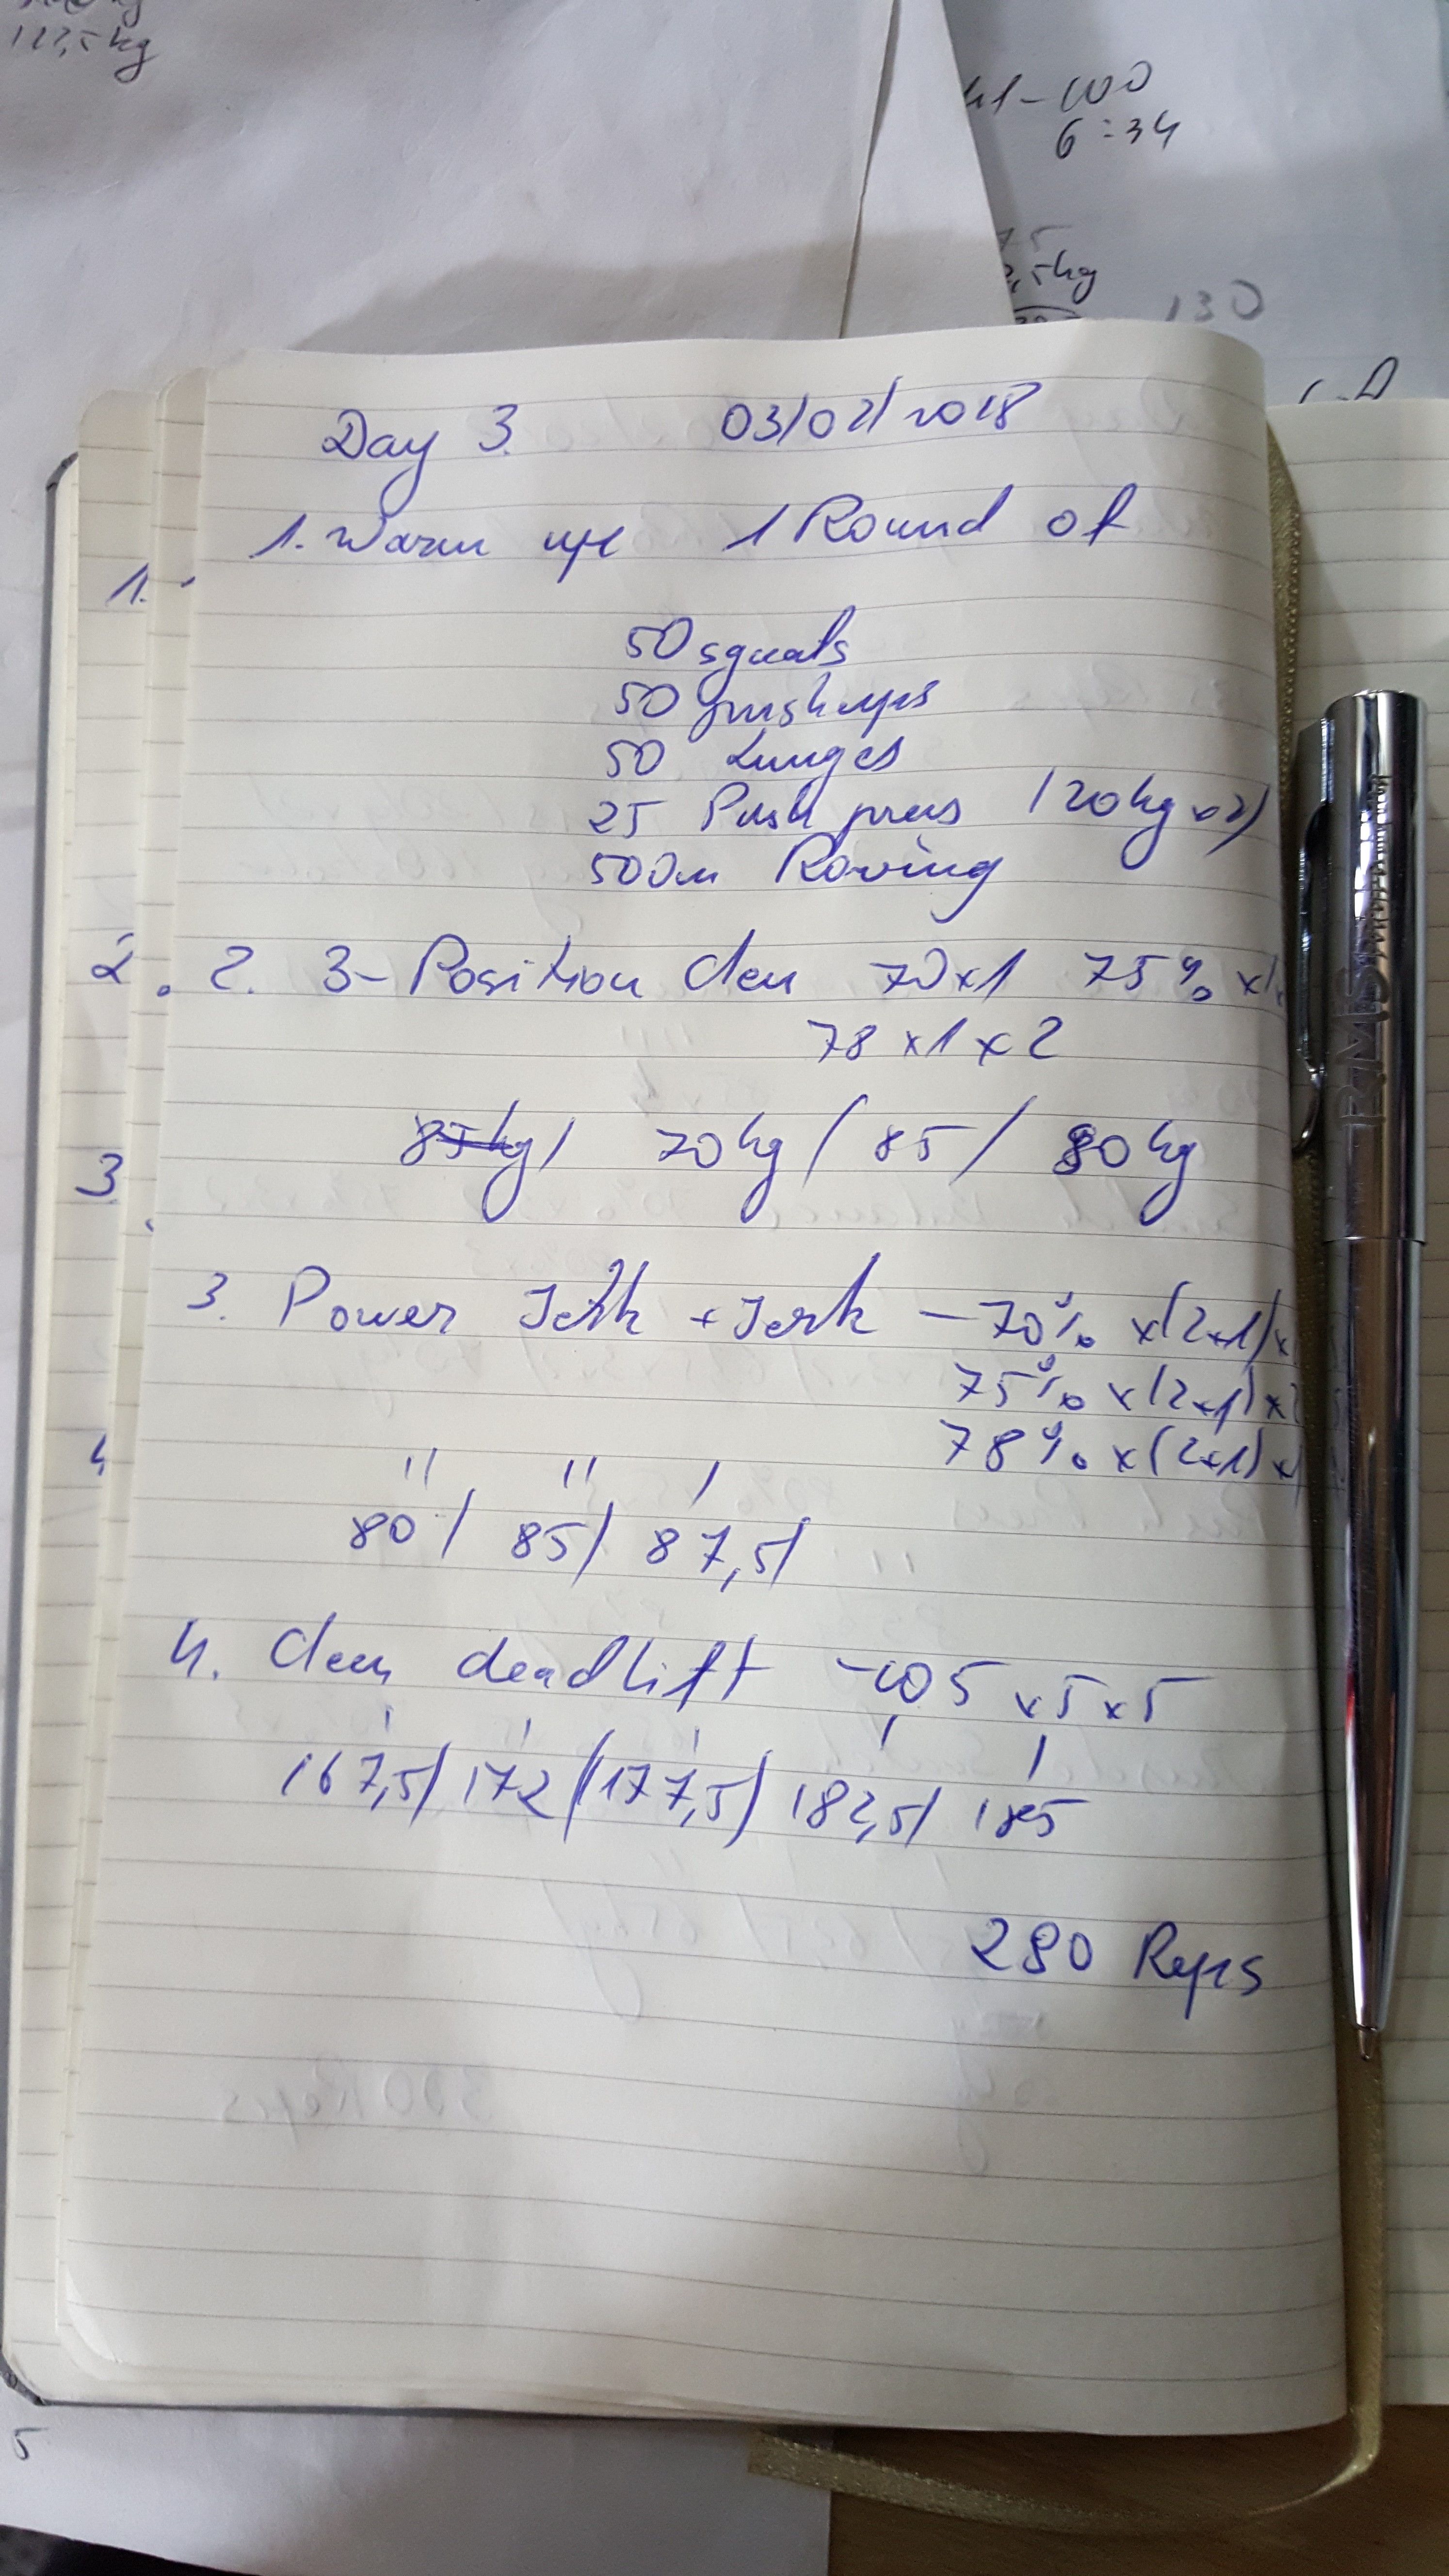 122,5kg
- 100
6:34
75
,5kg
130
Day 3. 03/02/2018
1. Warm up 1 Round of
1.
50 squats
50 push ups
50 Lunges
25 Push press (20kg x2)
500m Rowing
2. 2. 3-Position Clean 70x1 75% x1
78 x1 x 2
85kg / 70kg / 85 / 80kg
3
3. Power Jerk + Jerk - 70% x(2+1)x
75% x(2+1)x2
78% x(2+1)x
4
80 / 85 / 87,5 /
4. Clean deadlift - 105 x 5 x 5
167,5 / 172 / 177,5 / 182,5 / 185
280 Reps
300 Reps
5